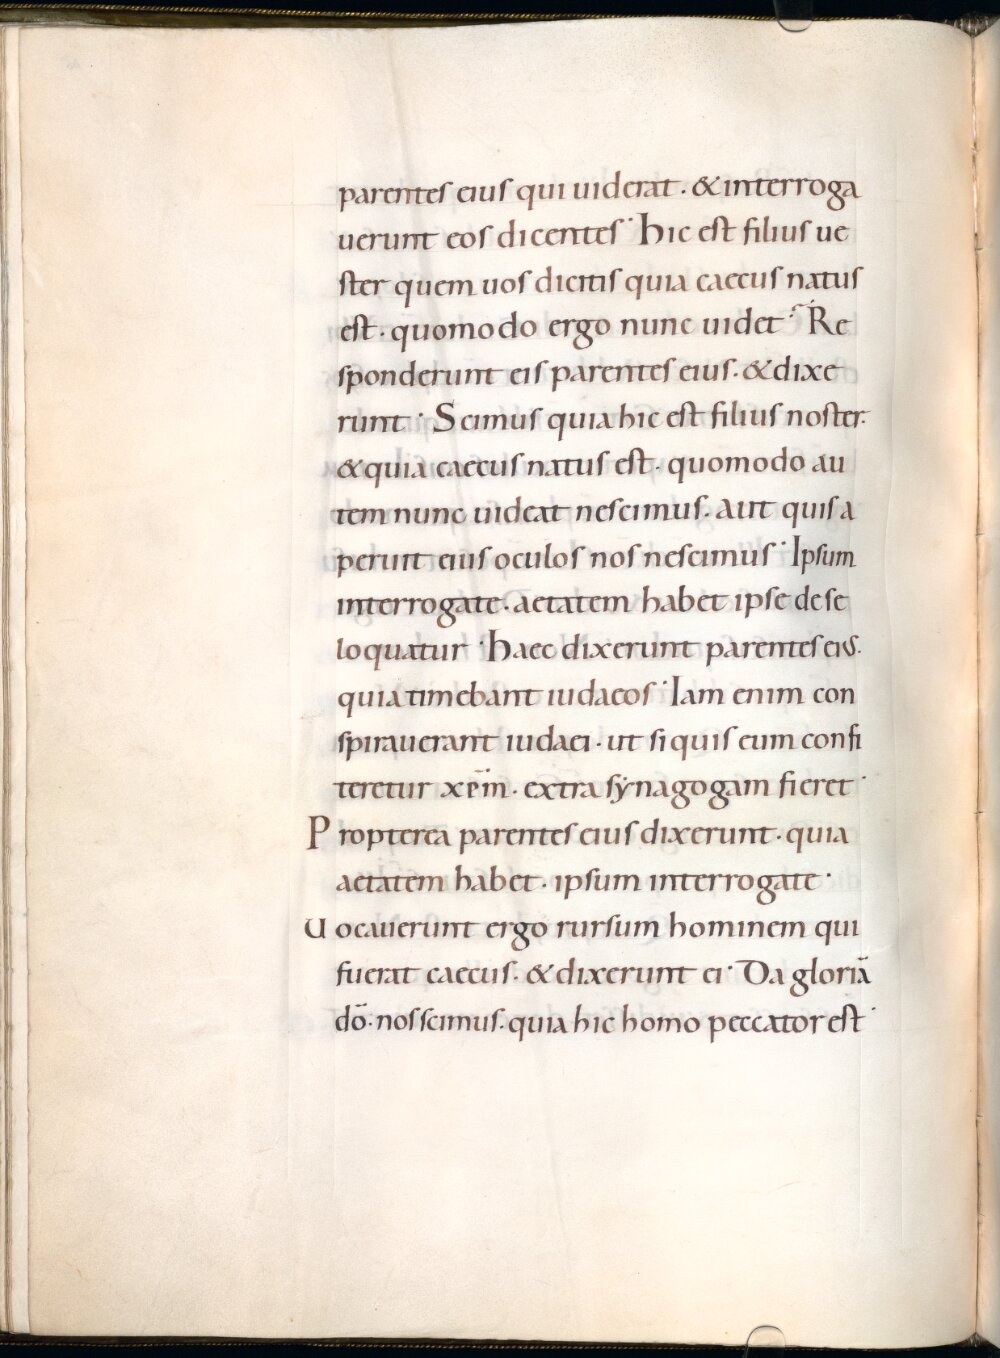 parentes eius qui uiderat · & interroga
uerunt eos dicentes · Hic est filius ue
ster quem uos dicitis quia caecus natus
est · quomodo ergo nunc uidet ? Re
sponderunt eis parentes eius · & dixe
runt · Scimus quia hic est filius noster ·
& quia caecus natus est · quomodo au
tem nunc uideat nescimus · aut quis a
peruit eius oculos nos nescimus · Ipsum
interrogate · aetatem habet ipse de se
loquatur · Haec dixerunt parentes eius ·
quia timebant iudaeos · Iam enim con
spirauerant iudaei · ut si quis eum confi
teretur xp̄m · extra synagogam fieret ·
Propterea parentes eius dixerunt · quia
aetatem habet · ipsum interrogate ·
Uocauerunt ergo rursum hominem qui
fuerat caecus · & dixerunt ei · Da gloriā
dō · nos scimus · quia hic homo peccator est ·